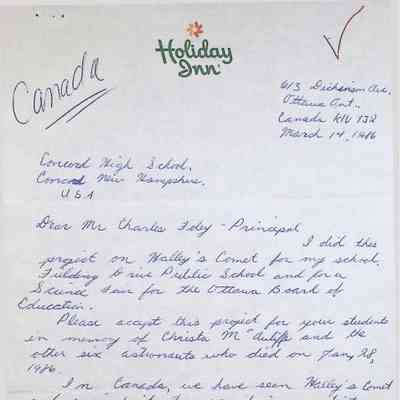 Holiday
Inn
Canada
613 Dickinson Ave.
Ottawa Ont.
Canada K1V 7J2
March 14, 1986
Concord High School,
Concord New Hampshire,
U.S.A
Dear Mr Charles Foley - Principal
I did this
project on Halley's Comet for my school,
Fielding Drive Public School and for a
Science Fair for the Ottawa Board of
Education.
Please accept this project for your students
in memory of Christa McAuliffe and the
other six astronauts who died on Jan, 28,
1986.
In Canada, we have seen Halley's Comet